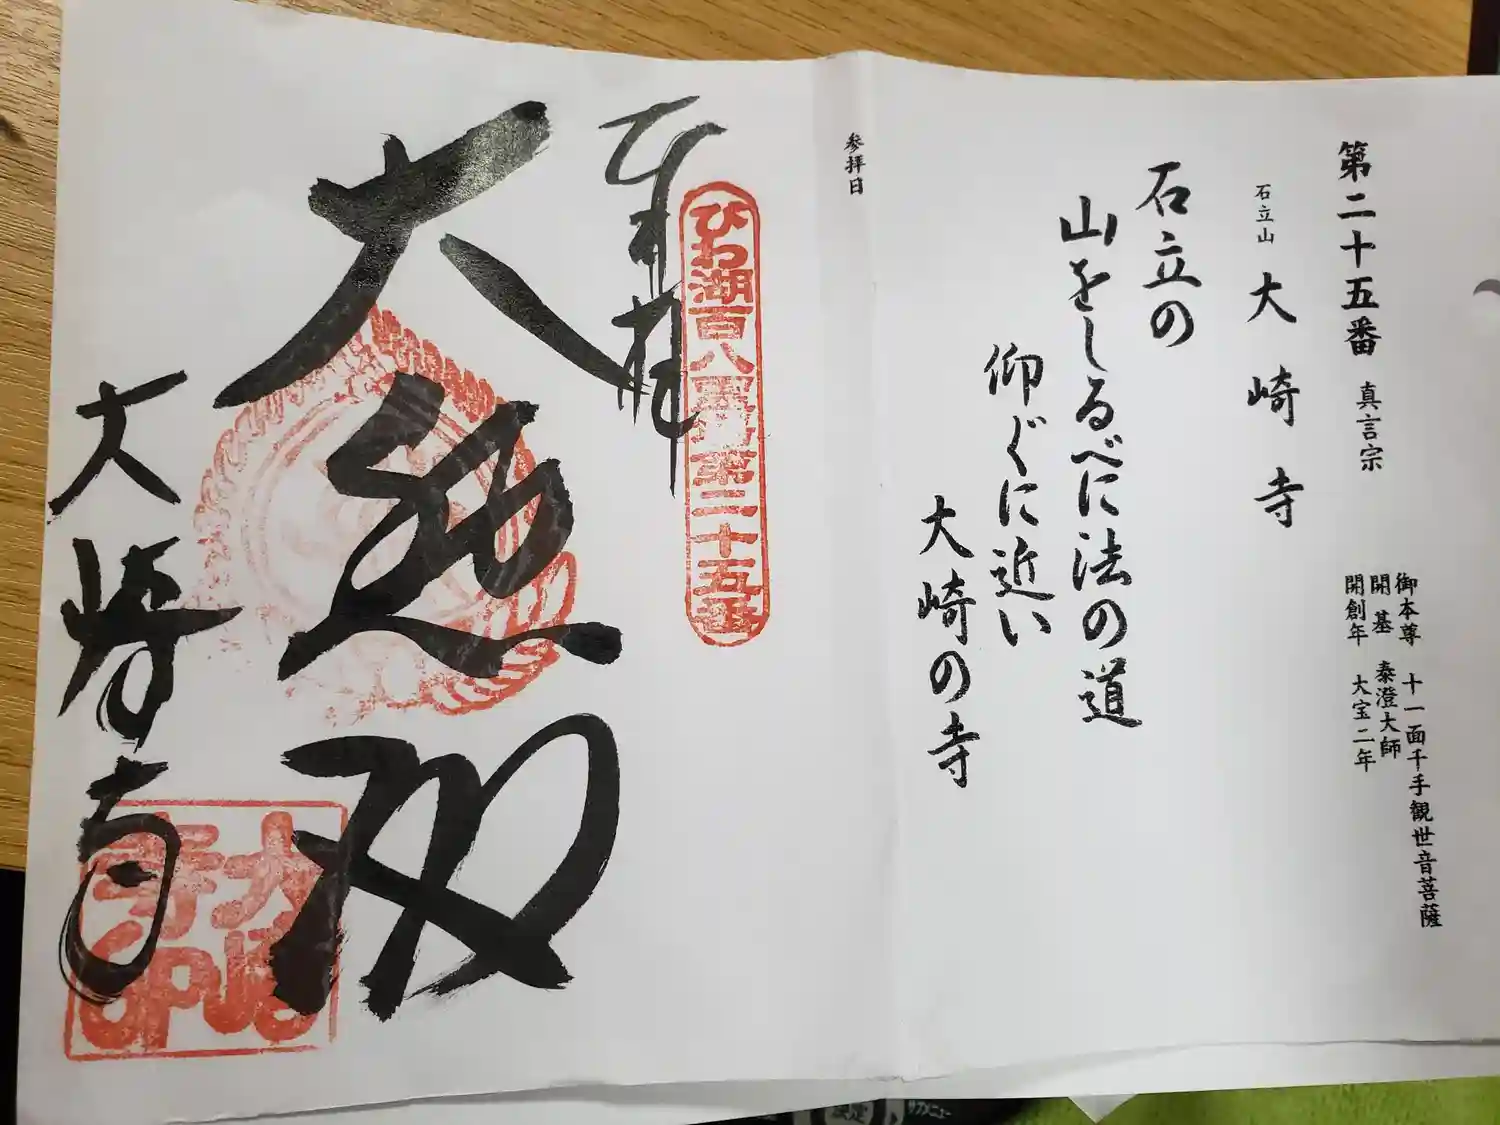 第二十五番 真言宗
御本尊 十一面千手観世音菩薩
開基 泰澄大師
開創年 大宝二年
石立山 大崎寺
石立の
山をしるべに法の道
仰ぐに近い
大崎の寺
参拝日
奉拝
ひわ湖百八霊場第二十五番
大悲殿
大崎寺
大崎寺印